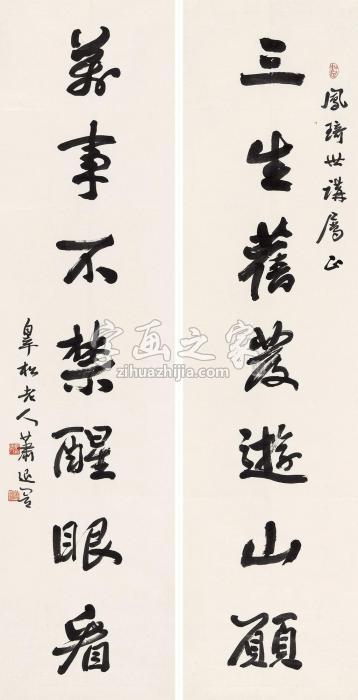 鳳琦世講屬正
三生舊發遊山願
萬事不禁醒眼看
皋松老人蕭退闇
字画之家
zihuazhijia.com